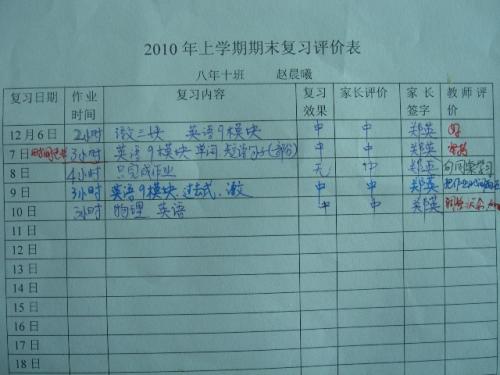 2010年上学期期末复习评价表
八年十班 赵晨曦
复习日期 作业时间 复习内容 复习效果 家长评价 家长签字 教师评价
12月6日 2小时 数三块 英语9模块 中 中 郑英 好
7日 3小时 英语9模块 单词 短语 句子(部分) 中 中 郑英
8日 4小时 只完成作业 无 中 郑英 向同桌学习
9日 3小时 英语9模块 过去式、数 中 中 郑英
10日 3小时 物理 英语 中 中 郑英
11日
12日
13日
14日
15日
16日
17日
18日